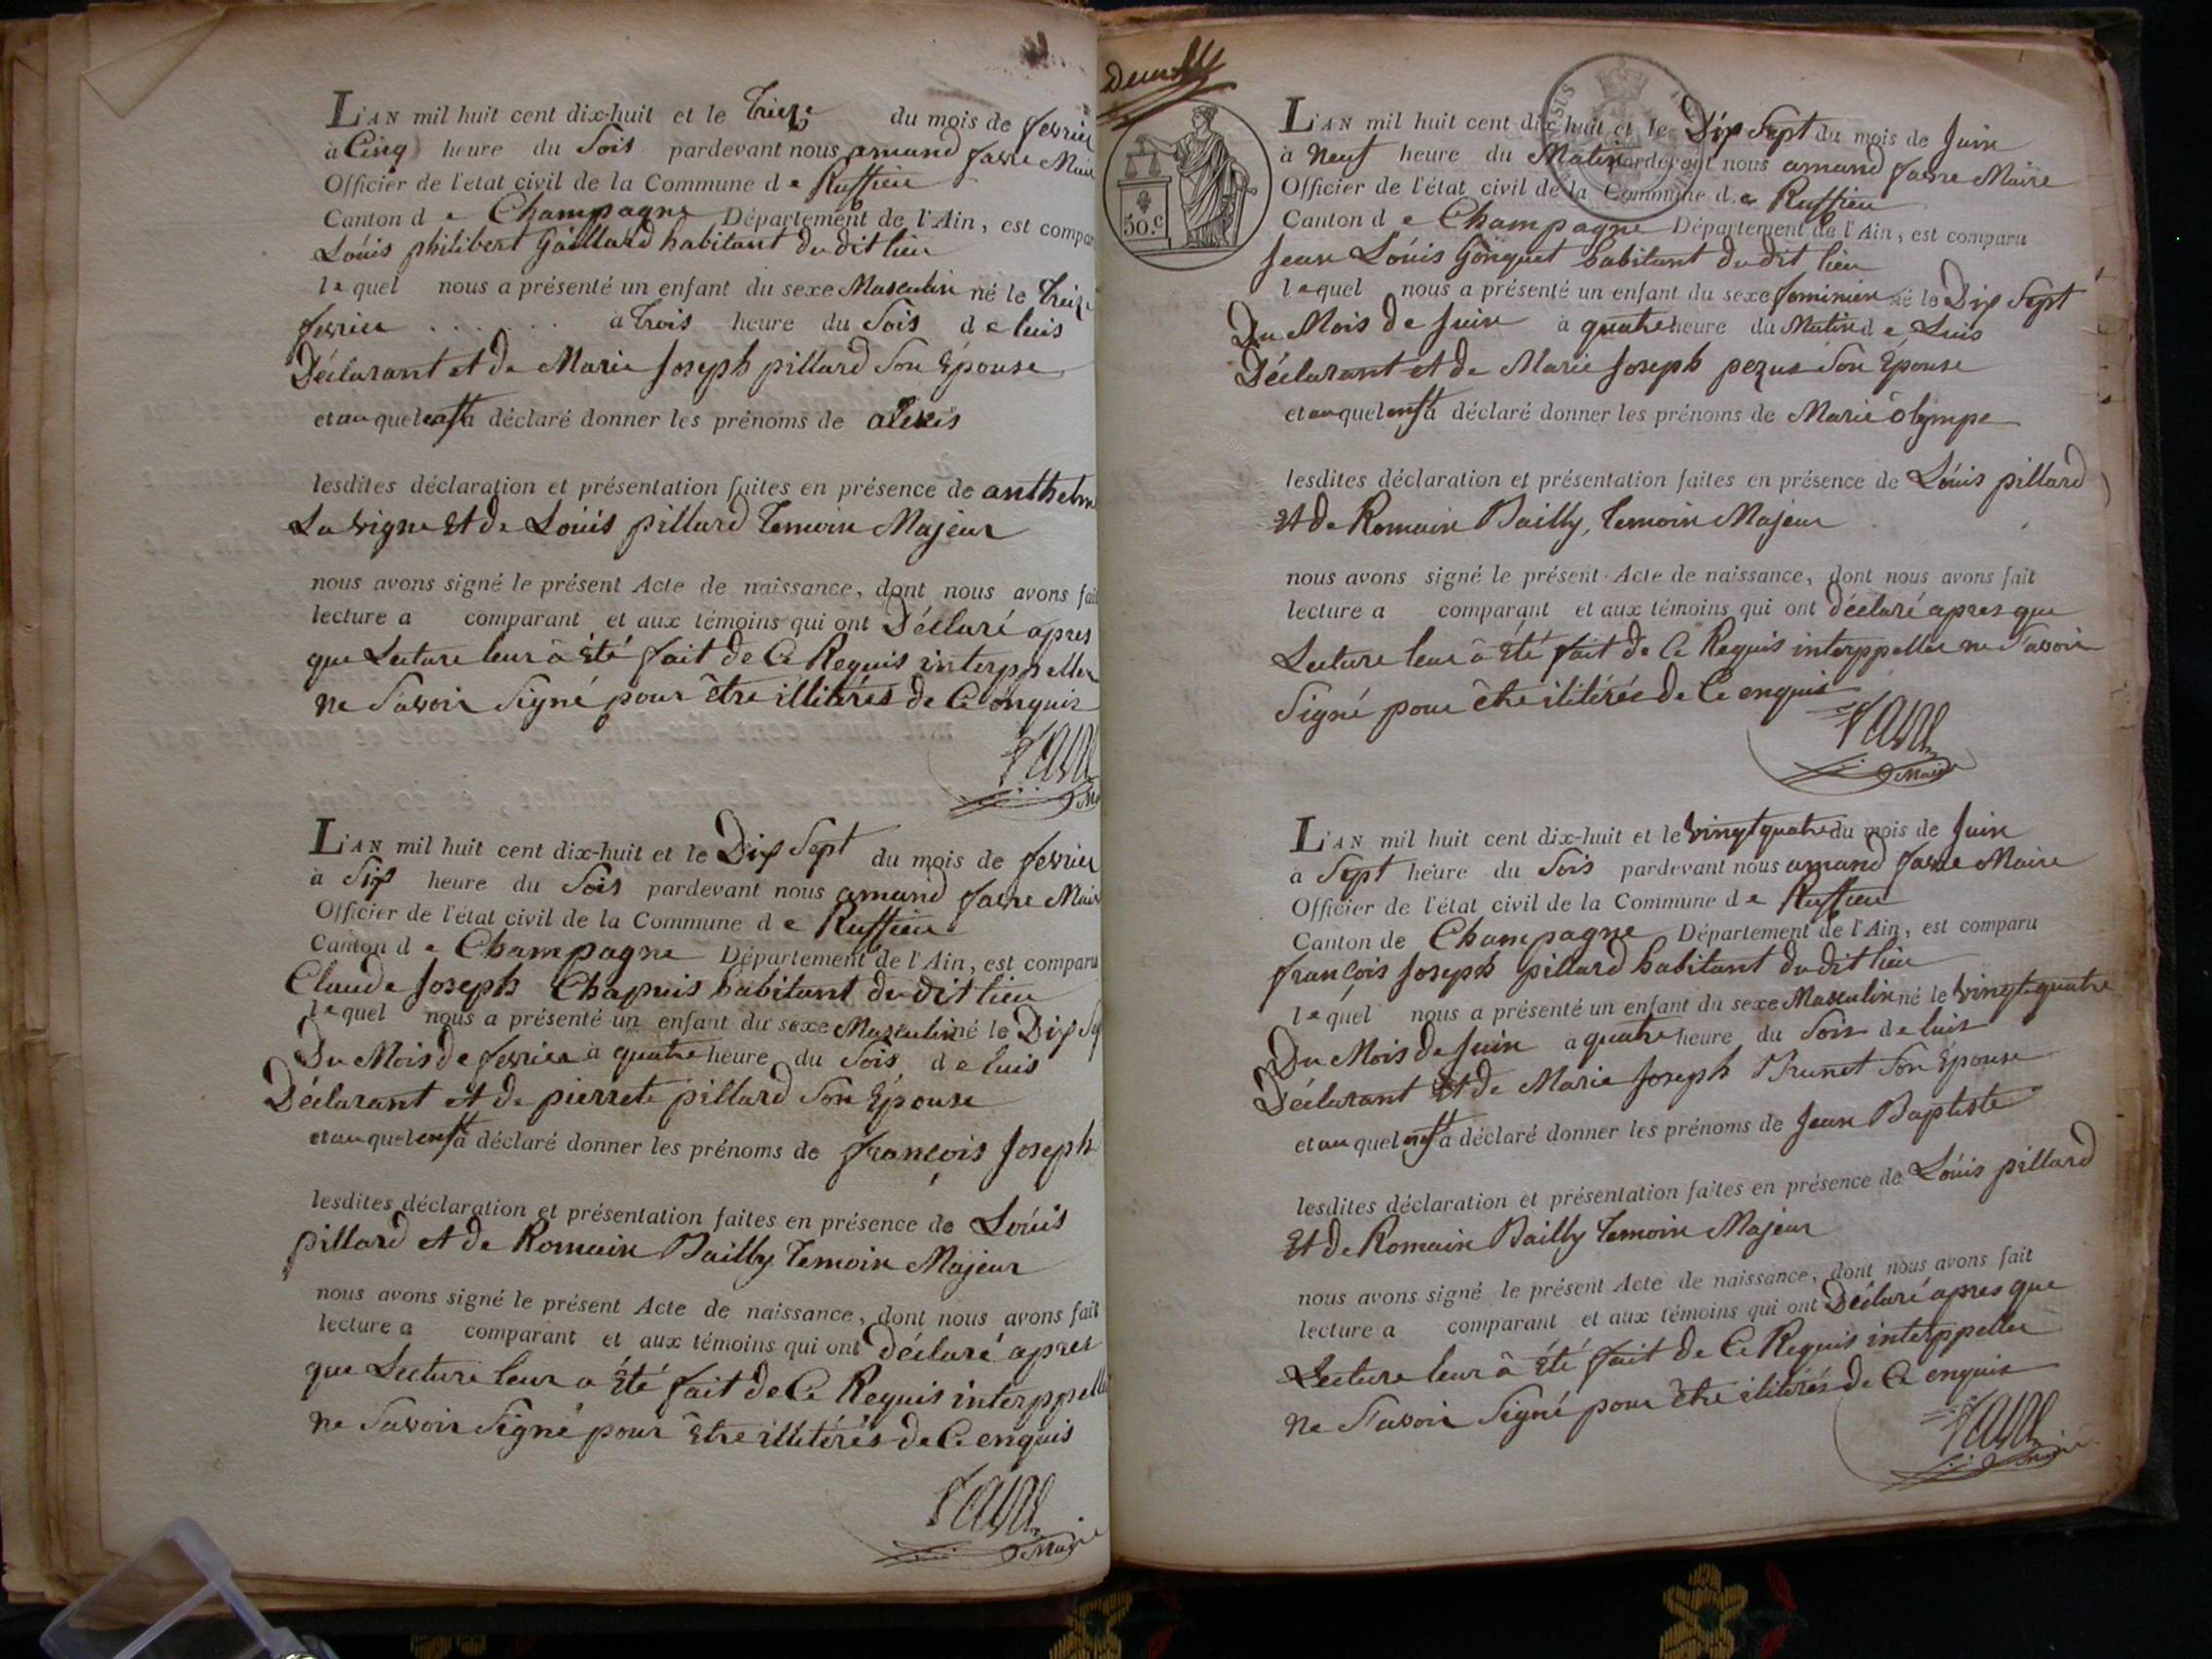 L'AN mil huit cent dix-huit et le treize du mois de fevrier
à Cinq heure du Soir pardevant nous amand favre Maire
Officier de l'état civil de la Commune de Ruffieu
Canton de Champagne Département de l'Ain, est compar
Loüis philibert Gaillard habitant du dit lieu
lequel nous a présenté un enfant du sexe Masculin né le treize
fevrier . . . . . . . à trois heure du Soir de luis
Déclarant et de Marie Joseph pillard Son Epouse
et au quel enft a déclaré donner les prénoms de alexis
lesdites déclaration et présentation faites en présence de anthelm
La vigne Et de Loüis pillard temoin Majeur
nous avons signé le présent Acte de naissance, dont nous avons fait
lecture a comparant et aux témoins qui ont Déclaré apres
que Lecture leur à Eté fait de Ce Requis interppeller
ne Savoir Signé pour être illitérés de Ce enquis
favre
Maire
L'AN mil huit cent dix-huit et le Dix Sept du mois de fevrier
à Six heure du Soir pardevant nous amand favre Maire
Officier de l'état civil de la Commune de Ruffieu
Canton de Champagne Département de l'Ain, est comparu
Claude Joseph Chapuis habitant du dit lieu
lequel nous a présenté un enfant du sexe Masculin né le Dix Sept
Du Mois de fevrier à quatre heure du Soir de luis
Déclarant et de pierrete pillard Son Epouse
et au quel enft a déclaré donner les prénoms de françois Joseph
lesdites déclaration et présentation faites en présence de Loüis
pillard et de Romain Bailly temoin Majeur
nous avons signé le présent Acte de naissance, dont nous avons fait
lecture a comparant et aux témoins qui ont Déclaré apres
que Lecture leur a Eté fait de Ce Requis interppeller
ne Savoir Signé pour Etre illitérés de Ce enquis
favre
Maire
50.c
L'AN mil huit cent dix-huit et le Dix Sept du mois de Juin
à neuf heure du Matin pardevant nous amand favre Maire
Officier de l'état civil de la Commune de Ruffieu
Canton de Champagne Département de l'Ain, est comparu
Jean Loüis Gonguet habitant du dit lieu
lequel nous a présenté un enfant du sexe feminin né le Dix Sept
Du Mois de Juin à quatre heure du Matin de Luis
Déclarant et de Marie Joseph pezus Son Epouse
et au quel enft a déclaré donner les prénoms de Marie olympe
lesdites déclaration et présentation faites en présence de Loüis pillard
Et de Romain Bailly, temoin Majeur
nous avons signé le présent Acte de naissance, dont nous avons fait
lecture a comparant et aux témoins qui ont déclaré apres que
Lecture leur à Eté fait de Ce Requis interppeller ne Savoir
Signé pour être ilitérés de Ce enquis
favre
Maire
L'AN mil huit cent dix-huit et le vingt quatre du mois de Juin
à Sept heure du Soir pardevant nous amand favre Maire
Officier de l'état civil de la Commune de Ruffieu
Canton de Champagne Département de l'Ain, est comparu
françois Joseph pillard habitant du dit lieu
lequel nous a présenté un enfant du sexe Masculin né le vingt quatre
Du Mois de Juin à quatre heure du Soir de luis
Déclarant Et de Marie Joseph Brunet Son Epouse
et au quel enft a déclaré donner les prénoms de Jean Baptiste
lesdites déclaration et présentation faites en présence de Loüis pillard
Et de Romain Bailly temoin Majeur
nous avons signé le présent Acte de naissance, dont nous avons fait
lecture a comparant et aux témoins qui ont Déclaré apres que
Lecture leur à Eté fait de Ce Requis interppeller
ne Savoir Signé pour être ilitérés de Ce enquis
favre
Maire